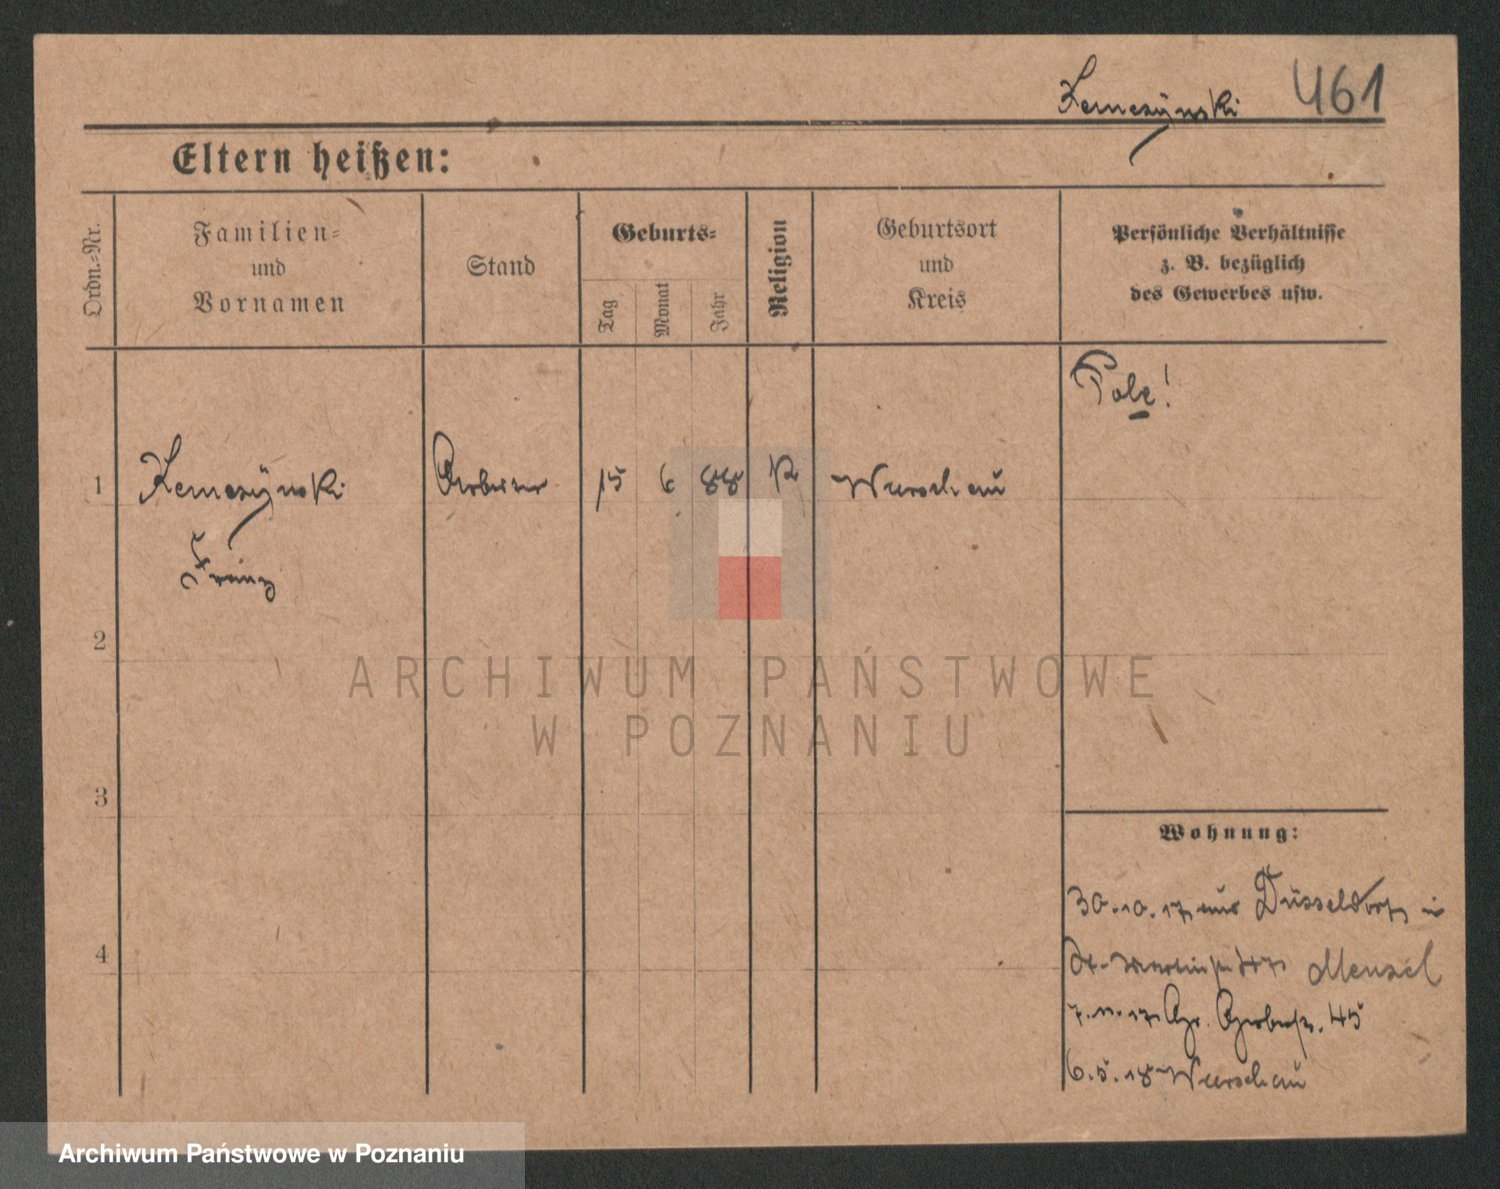 Kemczÿnski 461
Eltern heißen:
Ordn.-Nr.
Familien-
und
Vornamen
Stand
Geburts-
Tag
Monat
Jahr
Religion
Geburtsort
und
Kreis
Persönliche Verhältnisse
z. B. bezüglich
des Gewerbes usw.
Pole!
1 Kemczÿnski Arbeiter 15 6 88 K Warschau
Franz
2
3
4
Wohnung:
30.10.17 aus Düsseldorf in
St. Martinstr. Menzel
7.11.17 Gr. Gerberstr. 45
6.5.18 Warschau
ARCHIWUM PAŃSTWOWE
W POZNANIU
Archiwum Państwowe w Poznaniu